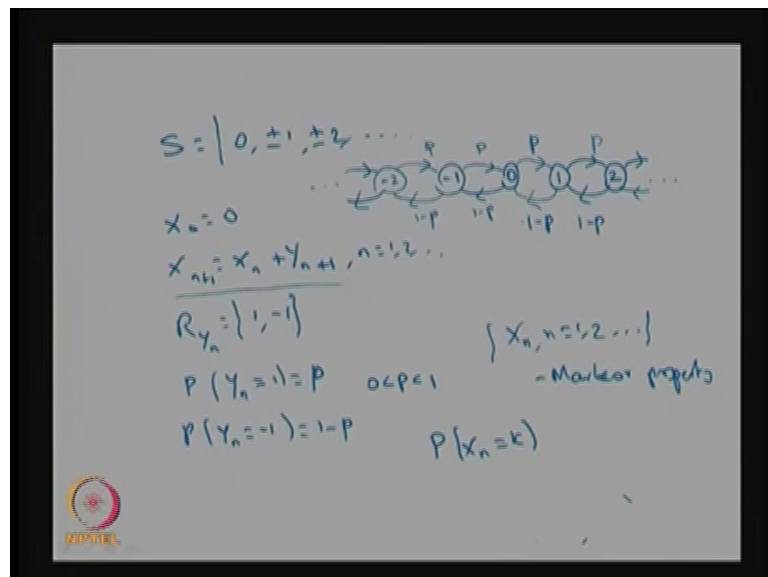 S = { 0, ±1, ±2, ....
p p p p
... -2 -1 0 1 2 ...
1-p 1-p 1-p 1-p
X₀ = 0
Xₙ₊₁ = Xₙ + Yₙ₊₁, n = 1, 2 ..
R_Yₙ = { 1, -1 }
{ Xₙ, n = 1, 2 ... }
P (Yₙ = 1) = p 0 < p < 1
- Markov property
P (Yₙ = -1) = 1-p
P (Xₙ = k)
NPTEL